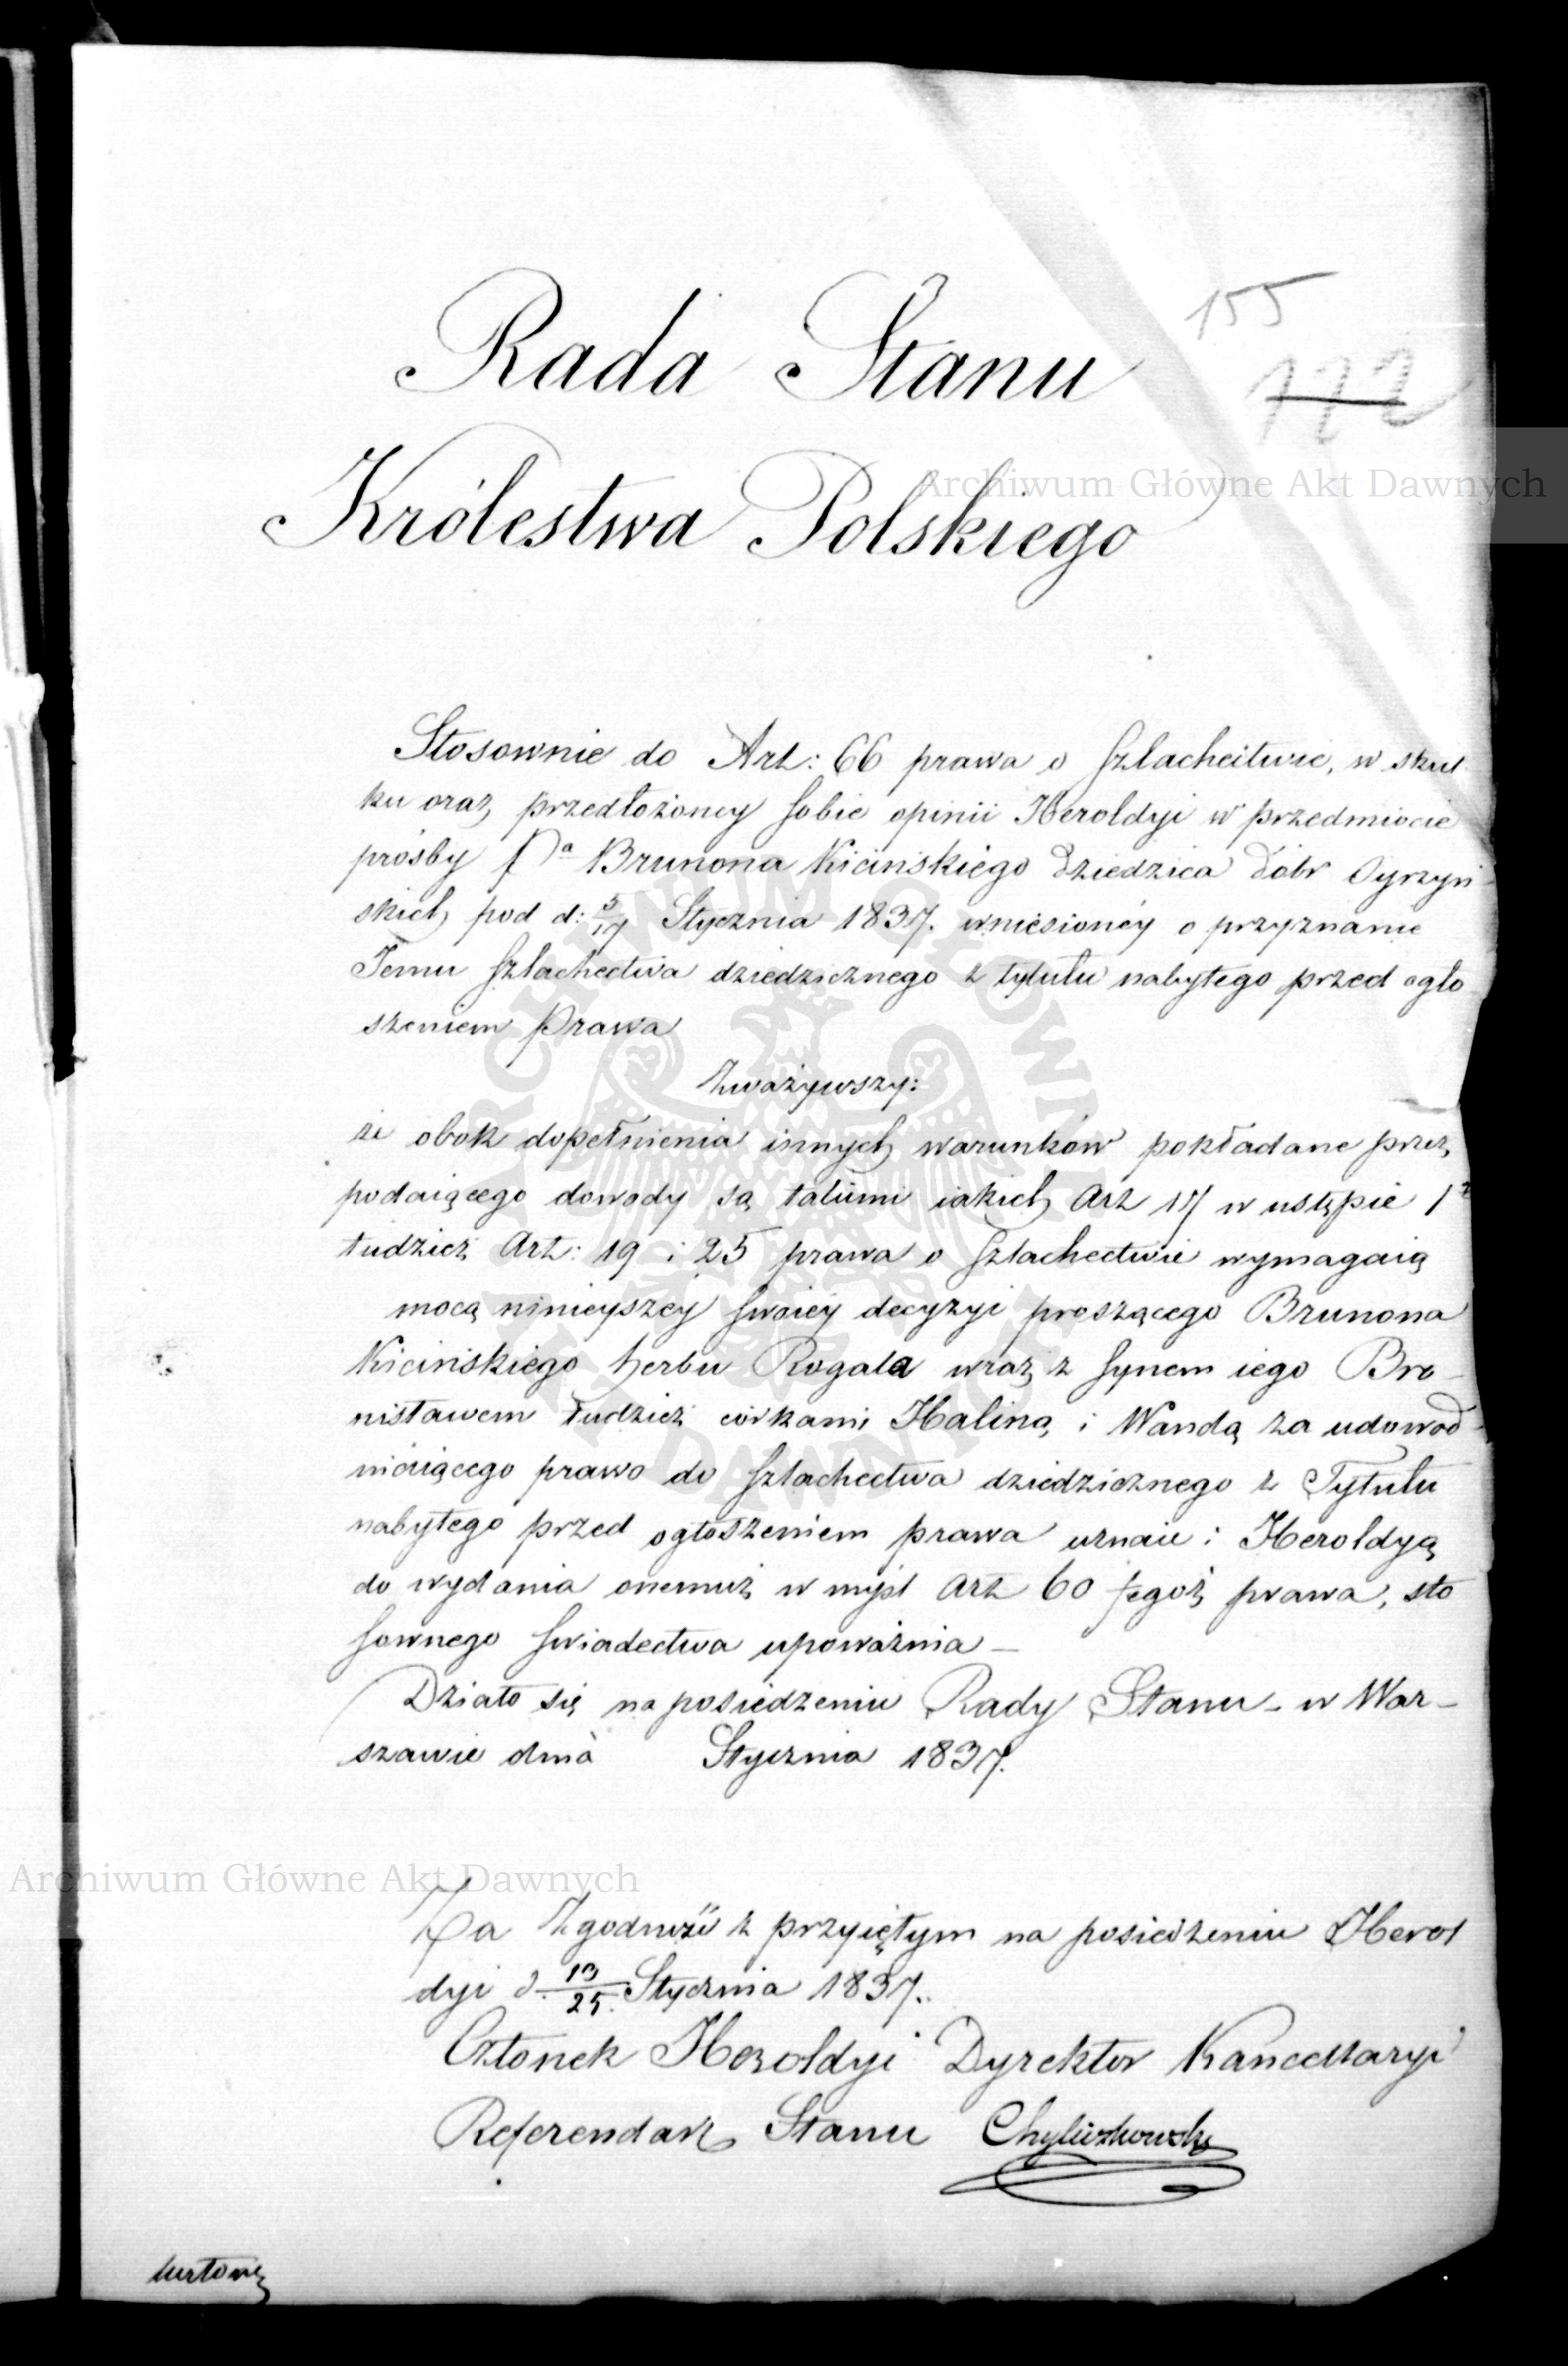 155
172
Rada Stanu
Królestwa Polskiego
Archiwum Główne Akt Dawnych
Stosownie do Art: 66 prawa o Szlachectwie, w skut-
ku oraz przedłożoney sobie opinii Heroldyi w przedmiocie
prośby Pa Brunona Kicińskiego Dziedzica dóbr
skich pod d: 5/17 Stycznia 1837. wniesionéy o przyznanie
Jemu szlachectwa dziedzicznego z tytułu nabytego przed ogło
szeniem Prawa
Zważywszy:
że obok dopełnienia innych warunków pokładane przez
podaiącego dowody są takiemi iakich Art 17 w ustępie 1
tudzież Art: 19 i 25 prawa o szlachectwie wymagaią
mocą ninieyszéy swoiéy decyzyi proszącego Brunona
Kicińskiego herbu Rogala wraz z synem iego Bro-
nisławem tudzież córkami Haliną i Wandą za udowod-
niaiącego prawo do szlachectwa dziedzicznego z Tytułu
nabytego przed ogłoszeniem prawa uznaie i Heroldyą
do wydania onemuż w myśl Art 60 tegoż prawa, sto
sownego swiadectwa upoważnia—
Działo się na posiedzeniu Rady Stanu - w War-
szawie dnia Stycznia 1837.
Archiwum Główne Akt Dawnych
Za Zgodność z przyiętym na posiedzeniu Herol
dyi d. 13/25. Stycznia 1837.
Członek Heroldyi Dyrektor Kancellaryi
Referendarz Stanu Chyliczkowski